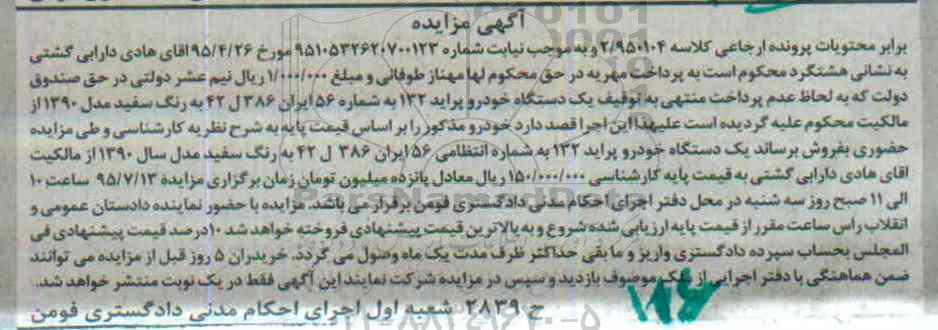 آگهی مزایده
برابر محتویات پرونده ارجاعی کلاسه ۲/۹۵۰۱۰۴ و به موجب نیابت شماره ۹۵۱۰۵۳۲۶۲۰۷۰۰۱۲۳ مورخ ۹۵/۴/۲۶ اقای هادی دارابی گشتی
به نشانی هشتگرد محکوم است به پرداخت مهریه در حق محکوم لها مهناز طوفانی و مبلغ ۱/۰۰۰/۰۰۰ ریال نیم عشر دولتی در حق صندوق
دولت که به لحاظ عدم پرداخت منتهی به توقیف یک دستگاه خودرو پراید ۱۳۲ به شماره ۵۶ ایران ۳۸۶ ل ۴۲ به رنگ سفید مدل ۱۳۹۰ از
مالکیت محکوم علیه گردیده است علیهذا این اجرا قصد دارد خودرو مذکور را بر اساس قیمت پایه به شرح نظریه کارشناسی و طی مزایده
حضوری بفروش برساند یک دستگاه خودرو پراید ۱۳۲ به شماره انتظامی ۵۶ ایران ۳۸۶ ل ۴۲ به رنگ سفید مدل سال ۱۳۹۰ از مالکیت
آقای هادی دارابی گشتی به قیمت پایه کارشناسی ۱۵۰/۰۰۰/۰۰۰ ریال معادل پانزده میلیون تومان زمان برگزاری مزایده ۹۵/۷/۱۳ ساعت ۱۰
الی ۱۱ صبح روز سه شنبه در محل دفتر اجرای احکام مدنی دادگستری فومن برقرار می باشد. مزایده با حضور نماینده دادستان عمومی و
انقلاب راس ساعت مقرر از قیمت پایه ارزیابی شده شروع و به بالاترین قیمت پیشنهادی فروخته خواهد شد ۱۰درصد قیمت پیشنهادی فی
المجلس بحساب سپرده دادگستری واریز و ما بقی حداکثر ظرف مدت یک ماه وصول می گردد. خریدران ۵ روز قبل از مزایده می توانند
ضمن هماهنگی با دفتر اجرایی از ملک موصوف بازدید و سپس در مزایده شرکت نمایند این آگهی فقط در یک نوبت منتشر خواهد شد.
ح ۲۸۳۹ شعبه اول اجرای احکام مدنی دادگستری فومن